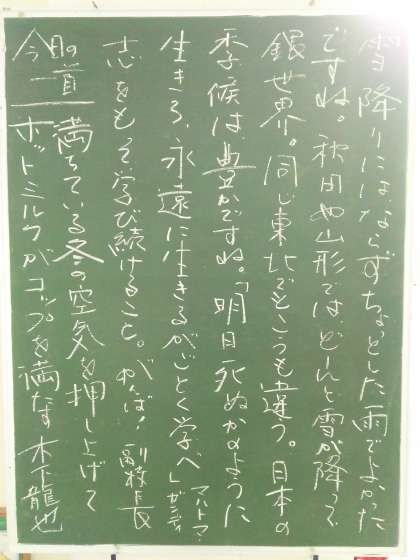 雪降りにはならずちょっとした雨でよかった
ですね。秋田や山形ではどーんと雪が降って
銀世界。同じ東北でもこうも違う。日本の
季候は、豊かですね。「明日死ぬかのように
生きろ、永遠に生きるがごとく学べ」ガンディー
マハトマ・
志をもって学び続けること。がんば！副校長
今日の一首
満ちている冬の空気を押し上げて
ホットミルクがコップを満たす 木下龍也